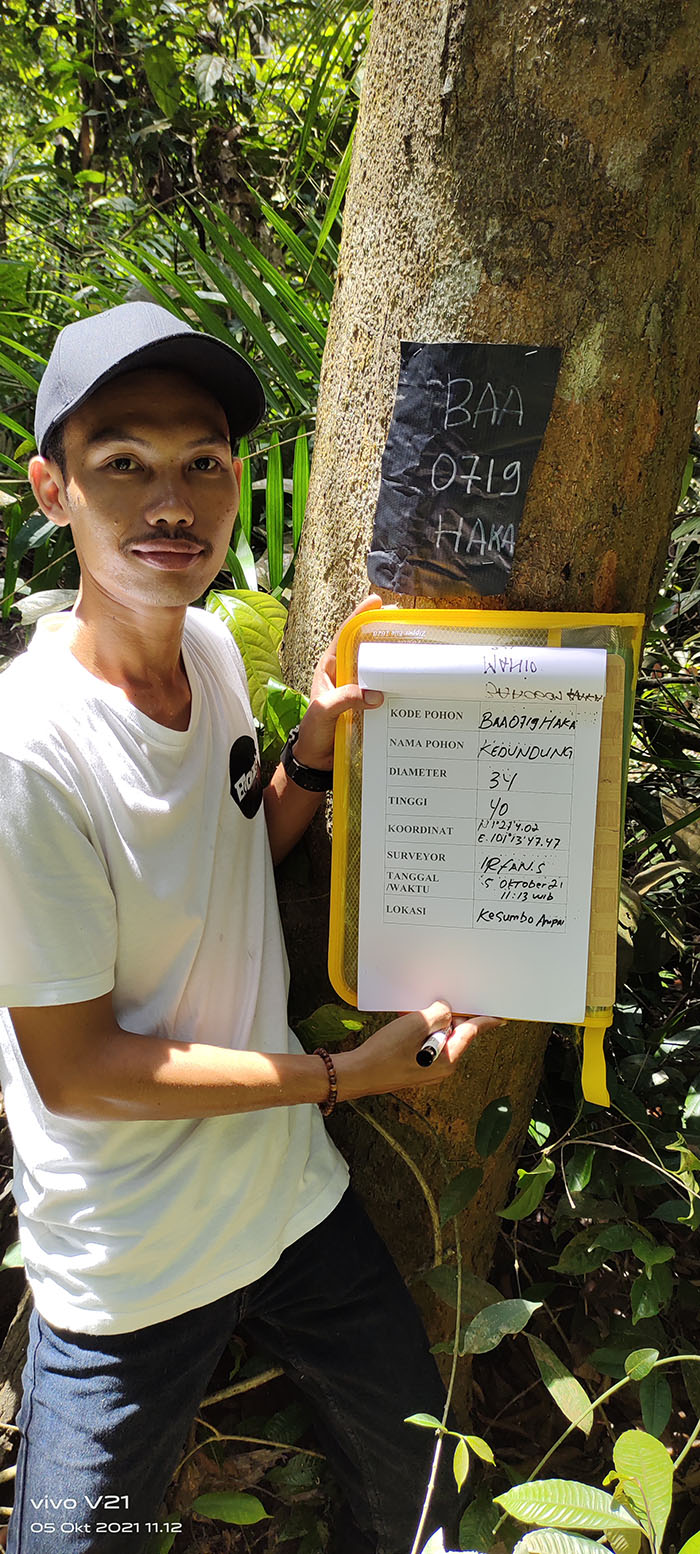 BAA
0719
HAKA
WAHID
KODE POHON BAA0719HAKA
NAMA POHON KEDUNDUNG
DIAMETER 34
TINGGI 40
KOORDINAT N 1°21'4.02
E.101°13'47.47
SURVEYOR IRFAN.S
TANGGAL 5 Oktober 21
/WAKTU 11:13 wib
LOKASI Kesumbo Ampai
vivo V21
05 Okt 2021 11.12